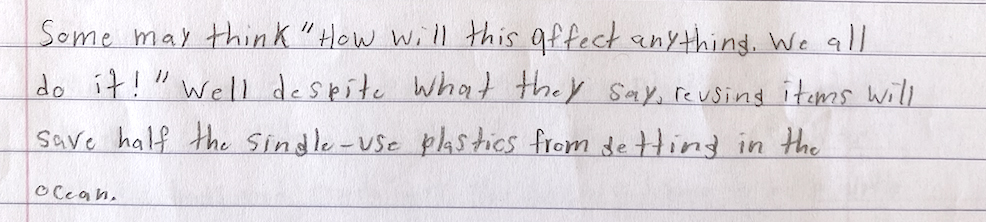 Some may think "How will this affect anything. We all
do it!" Well despite what they say, reusing items will
save half the single-use plastics from getting in the
ocean.